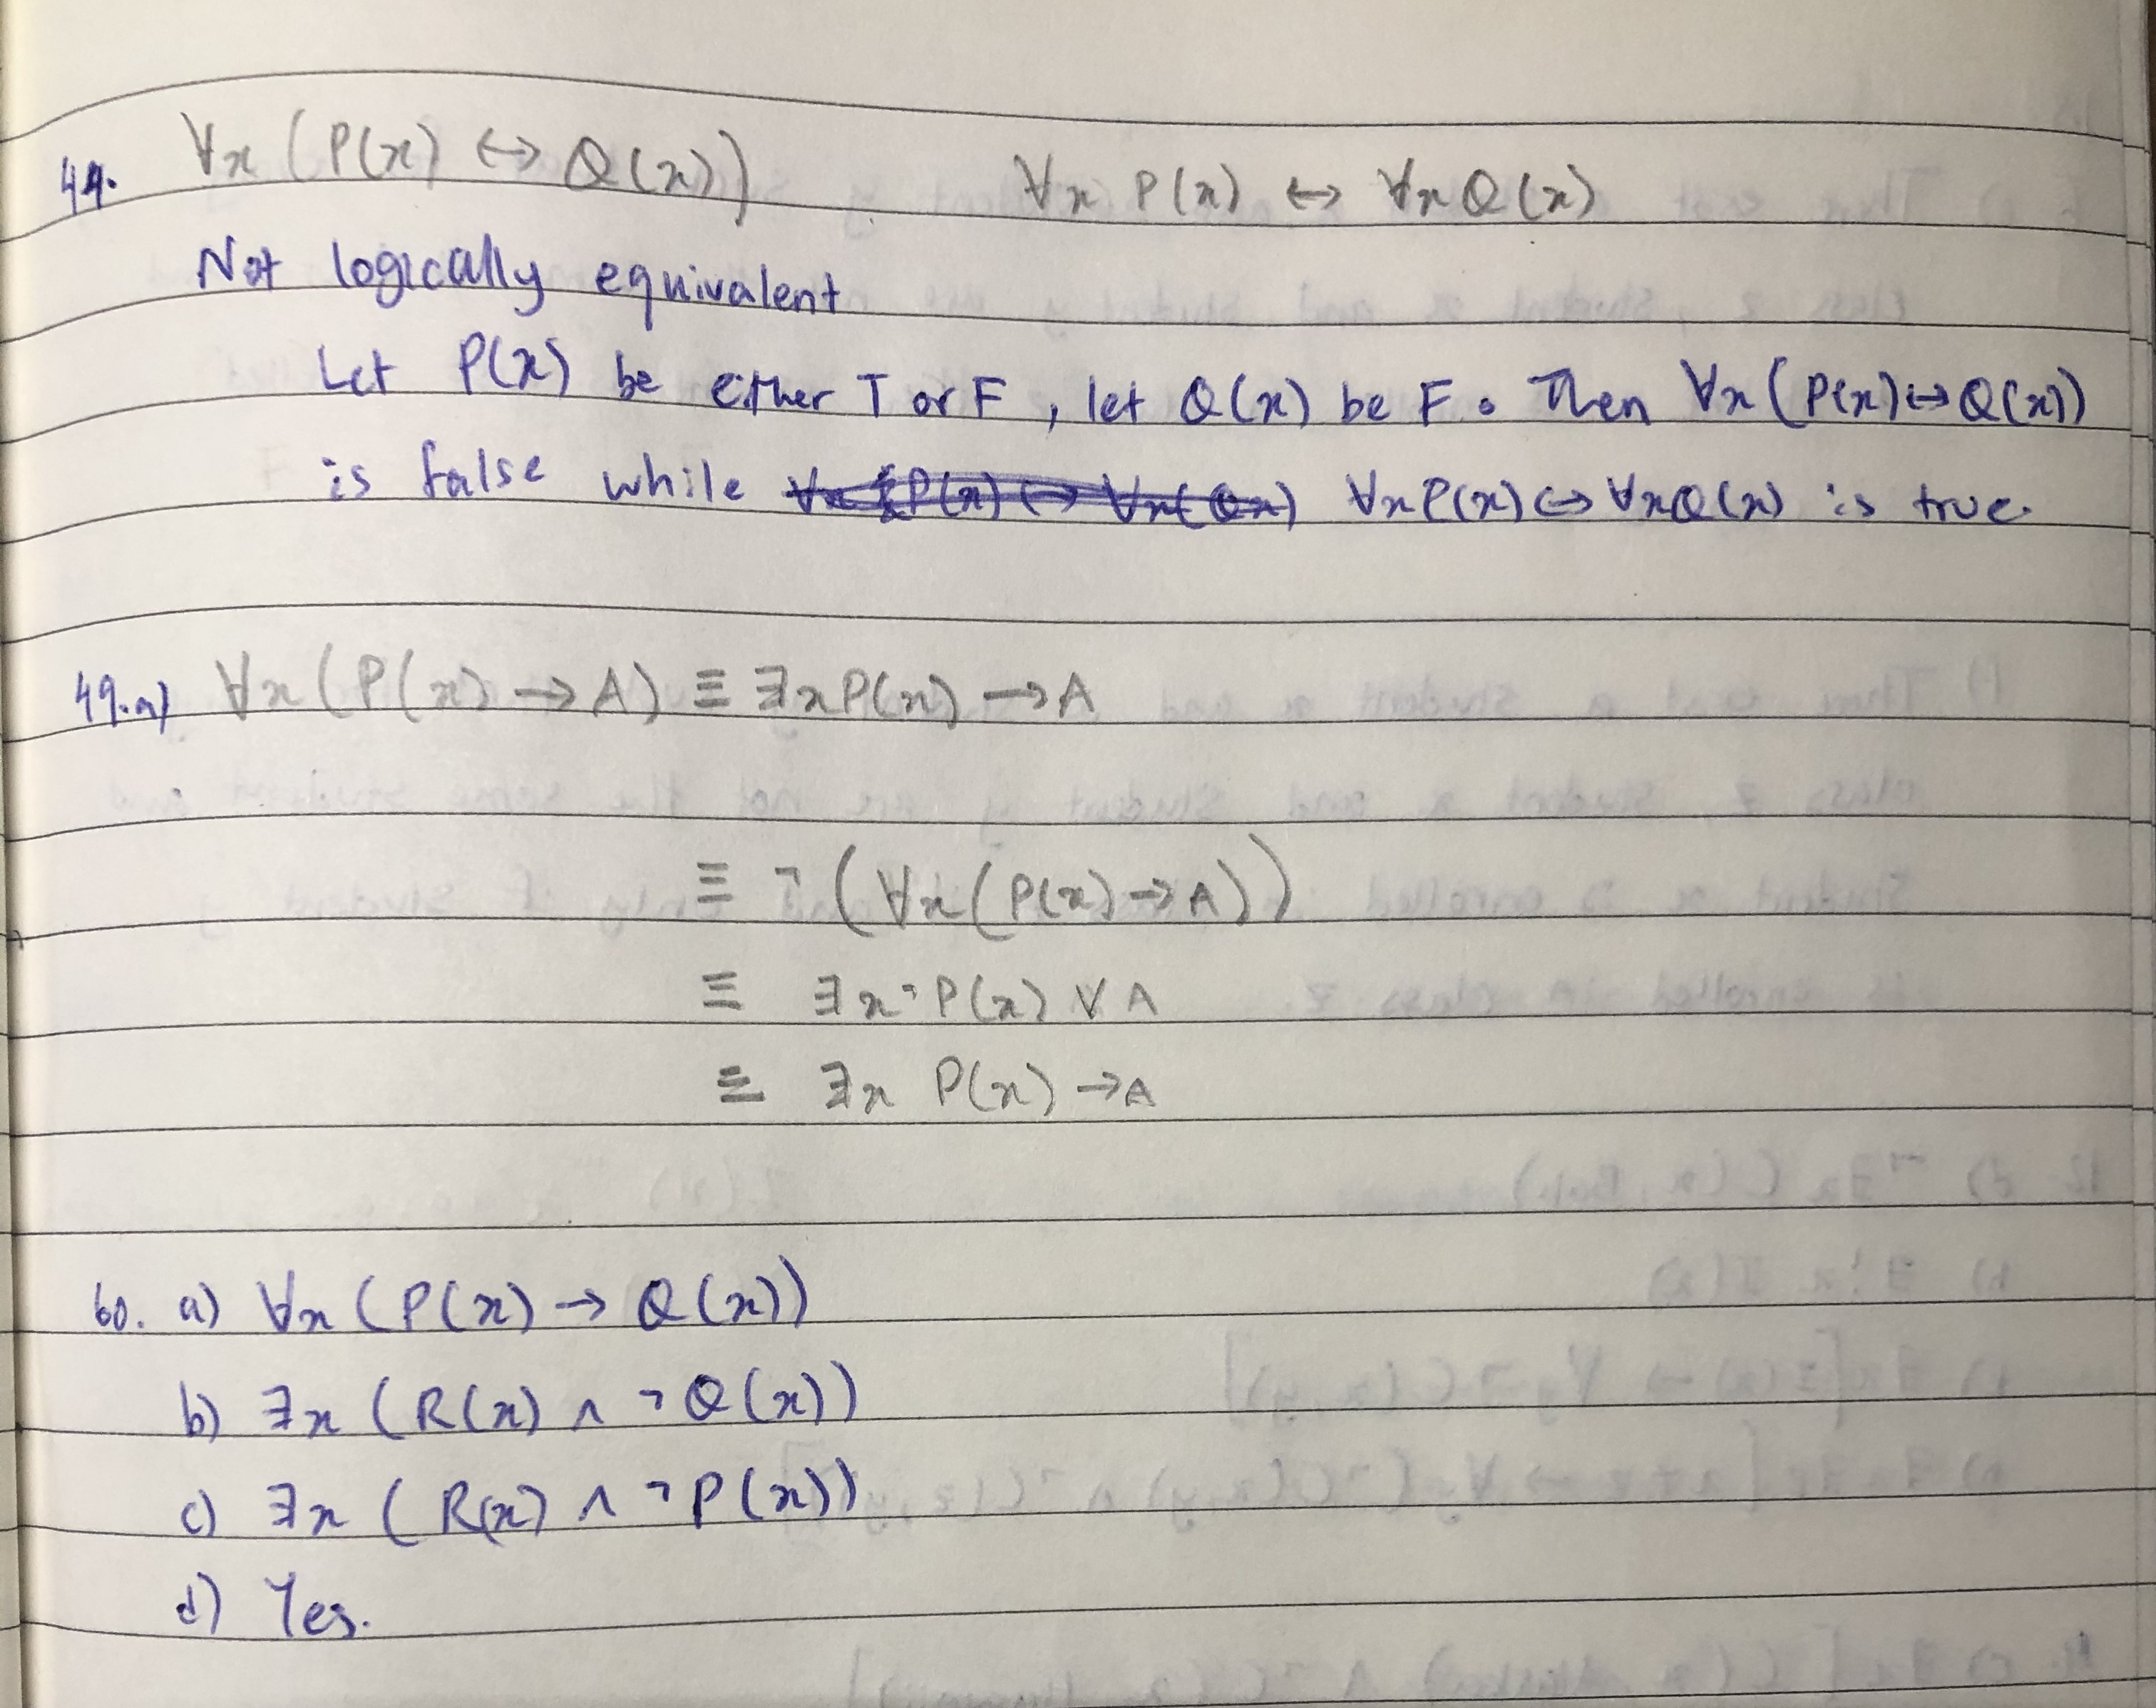 44. ∀x (P(x) ↔ Q(x)) ∀x P(x) ↔ ∀x Q(x)
Not logically equivalent
Let P(x) be either T or F, let Q(x) be F. Then ∀x (P(x) ↔ Q(x))
is false while ∀x P(x) ↔ ∀x Q(x) is true.
49.a) ∀x (P(x) → A) ≡ ∃x P(x) → A
≡ ¬ (∀x (P(x) → A))
≡ ∃x ¬ P(x) ∨ A
≡ ∃x P(x) → A
60. a) ∀x (P(x) → Q(x))
b) ∃x (R(x) ∧ ¬ Q(x))
c) ∃x (R(x) ∧ ¬ P(x))
d) Yes.